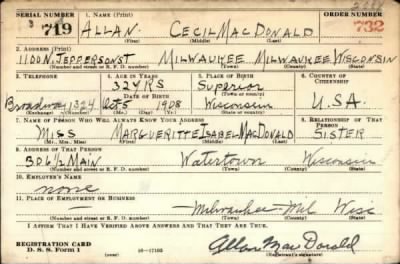 SERIAL NUMBER 1. NAME (Print) ORDER NUMBER
719 ALLAN. CECIL MACDONALD 732
(First) (Middle) (Last)
2. ADDRESS (Print)
1100 N. JEFFERSON ST MILWAUKEE MILWAUKEE WISCONSIN
(Number and street or R. F. D. number) (Town) (County) (State)
3. TELEPHONE 4. AGE IN YEARS 5. PLACE OF BIRTH 6. COUNTRY OF CITIZENSHIP
32 YRS Superior
DATE OF BIRTH (Town or county)
Broadway 1324 Oct 5 1908 Wisconsin U.S.A.
(Exchange) (Number) (Mo.) (Day) (Yr.) (State or country)
7. NAME OF PERSON WHO WILL ALWAYS KNOW YOUR ADDRESS 8. RELATIONSHIP OF THAT PERSON
MISS MARGUERITTE ISABEL MACDONALD SISTER
(Mr., Mrs., Miss) (First) (Middle) (Last)
9. ADDRESS OF THAT PERSON
306½ MAIN Watertown Wisconsin
(Number and street or R. F. D. number) (Town) (County) (State)
10. EMPLOYER'S NAME
none
11. PLACE OF EMPLOYMENT OR BUSINESS
Milwaukee Mil Wisc
(Number and street or R. F. D. number) (Town) (County) (State)
I AFFIRM THAT I HAVE VERIFIED ABOVE ANSWERS AND THAT THEY ARE TRUE.
REGISTRATION CARD
D. S. S. Form 1 16—17105 Allan MacDonald
(Registrant's signature)